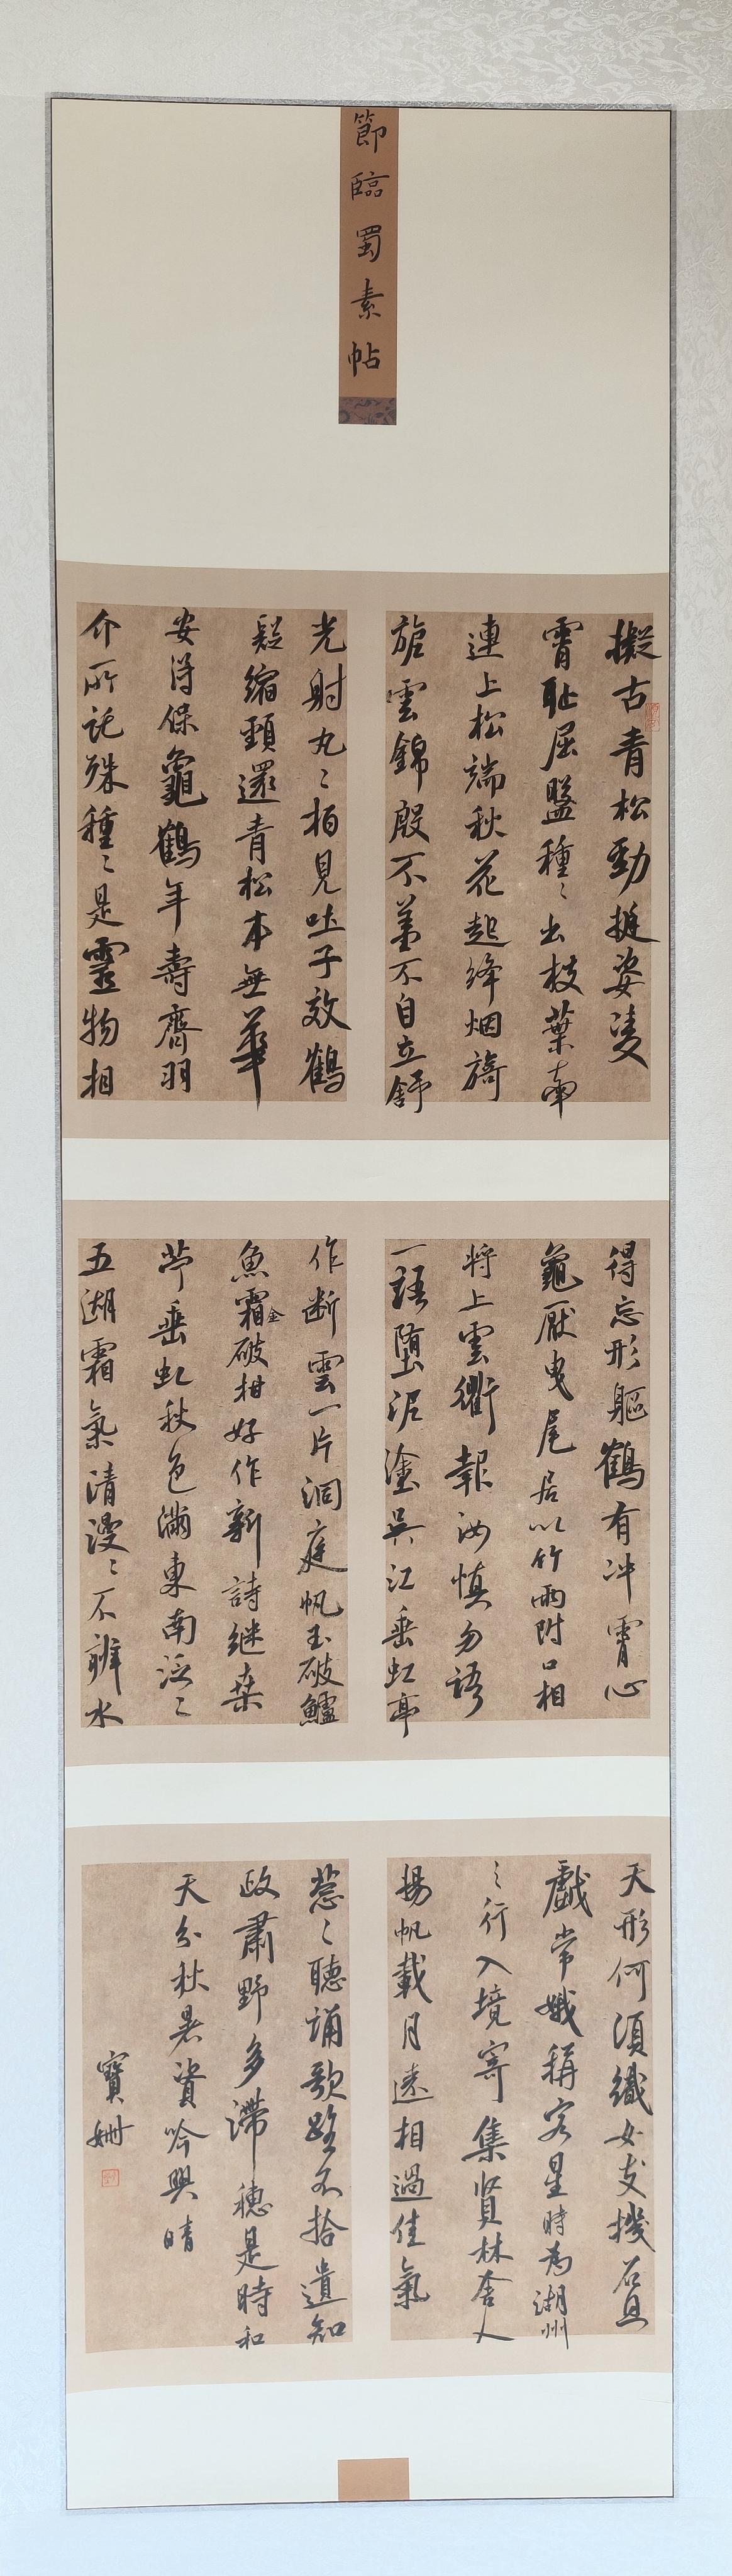 節臨蜀素帖
擬古青松勁挺姿凌
霄恥屈盤種〻出枝葉牽
連上松端秋花起絳烟旖
旎雲錦殷不羞不自立舒
光射丸〻柏見吐子效鶴
疑縮頸還青松本無華
安得保龜鶴年壽齊羽
介所託殊種〻是靈物相
得忘形軀鶴有冲霄心
龜厭曳尾居以竹兩附口相
將上雲衢報汝慎勿語
一語墮泥塗吳江垂虹亭
作斷雲一片洞庭帆玉破鱸
魚霜金破柑好作新詩繼桑
苧垂虹秋色滿東南泛〻
五湖霜氣清漫〻不辨水
天形何須織女支機石且
戲常娥稱客星時為湖州
之行入境寄集賢林舍人
揚帆載月遠相過佳氣
蔥〻聽誦歌路不拾遺知
政肅野多滯穗是時和
天分秋暑資吟興晴
寶姍